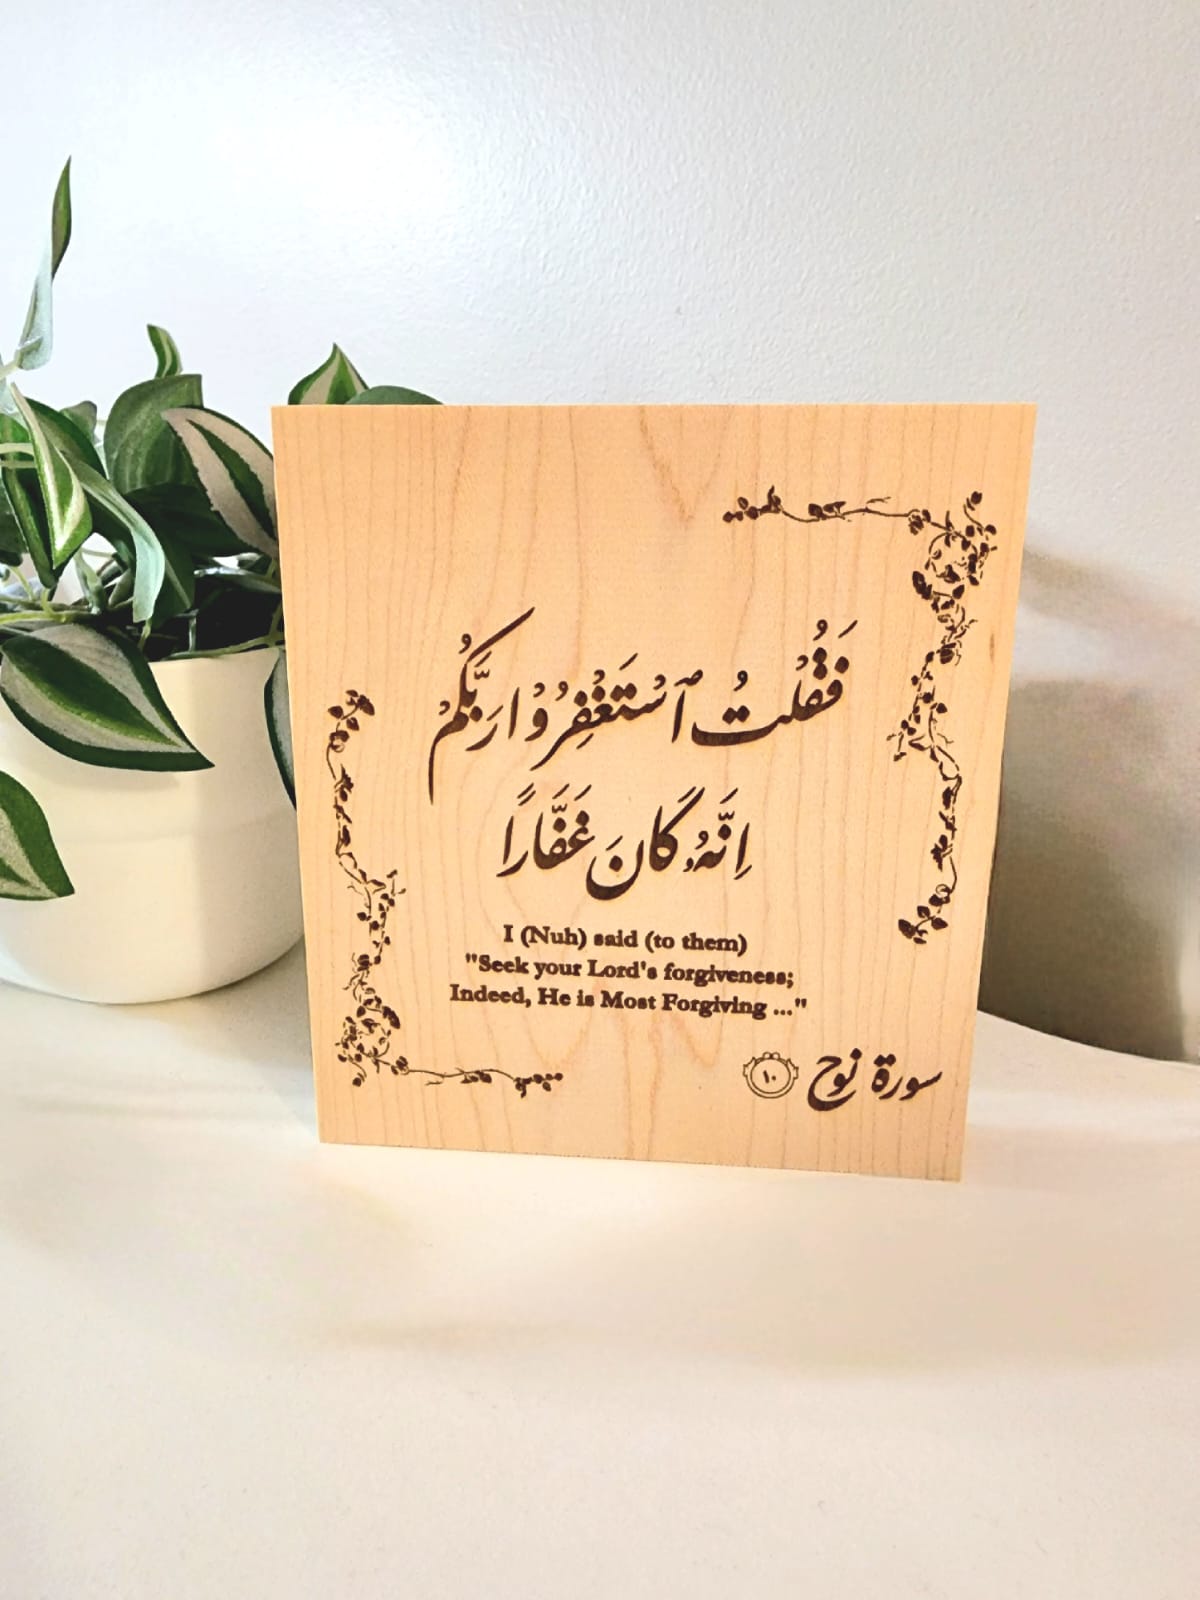 فَقُلْتُ ٱسْتَغْفِرُوْا رَبَّكُمْ
اِنَّهُۥ كَانَ غَفَّارًا
I (Nuh) said (to them)
"Seek your Lord's forgiveness;
Indeed, He is Most Forgiving ..."
سورة نوح ١٠